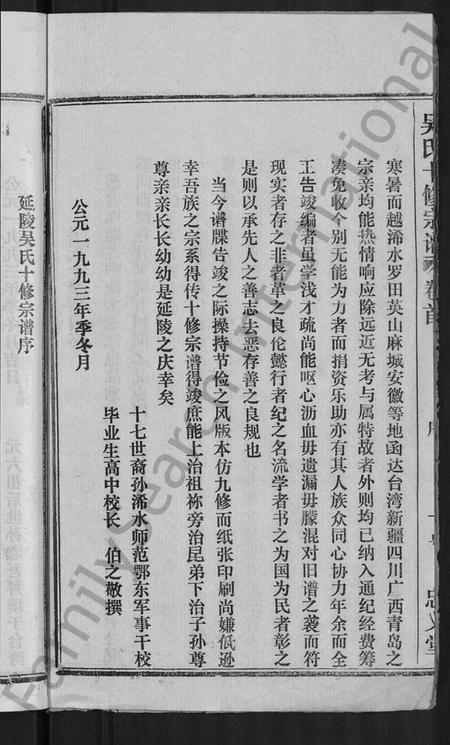 吴氏十修宗谱 卷首
忠义堂
寒暑而越浠水罗田英山麻城安徽等地函达台湾新疆四川广西青岛之
宗亲均能热情响应除远近无考与属特故者外则均已纳入通纪经费筹
凑免收个别无能为力者而捐资乐助亦有其人族众同心协力年余而全
工告竣编者虽学浅才疏尚能呕心沥血毋遗漏毋朦混对旧谱之袭而符
现实者存之非者革之良伦懿行者纪之名流学者书之为国为民者彰之
是则以承先人之善志去恶存善之良规也
当今谱牒告竣之际操持节俭之风版本仿九修而纸张印刷尚嫌低逊
幸吾族之宗系得传十修宗谱得竣庶能上治祖祢旁治昆弟下治子孙尊
尊亲亲长长幼幼是延陵之庆幸矣
公元一九九三年季冬月
十七世裔孙浠水师范鄂东军事干校
毕业生高中校长 伯之敬撰
延陵吴氏十修宗谱序
FamilySearch International